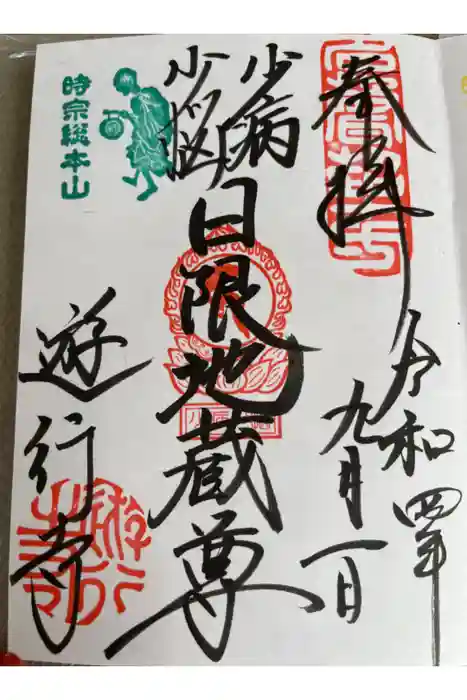 奉拝
令和四年
九月一日
少病
少悩
日限地蔵尊
時宗総本山
遊行寺